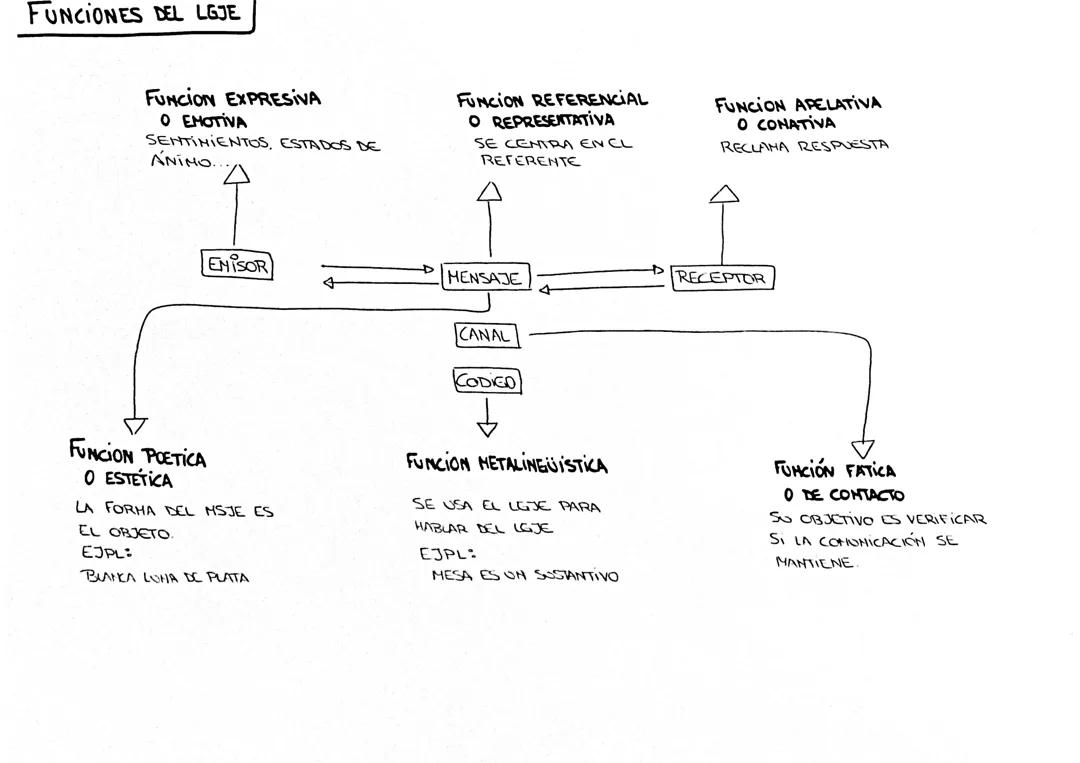 FUNCIONES DEL LGJE
FUNCION EXPRESIVA
O EMOTIVA
SENTIMIENTOS, ESTADOS DE
ÁNIMO...
FUNCION REFERENCIAL
O REPRESENTATIVA
SE CENTRA EN EL
REFERENTE
FUNCION APELATIVA
O CONATIVA
RECLAMA RESPUESTA
EMISOR
MENSAJE
RECEPTOR
CANAL
CODIGO
FUNCION POETICA
O ESTÉTICA
LA FORMA DEL MSJE ES
EL OBJETO.
EJPL:
BLANCA LUNA DE PLATA
FUNCION METALINGÜISTICA
SE USA EL LGJE PARA
HABLAR DEL LGJE
EJPL:
MESA ES UN SUSTANTIVO
FUNCIÓN FATICA
O DE CONTACTO
SU OBJETIVO ES VERIFICAR
SI LA COMUNICACIÓN SE
MANTIENE.